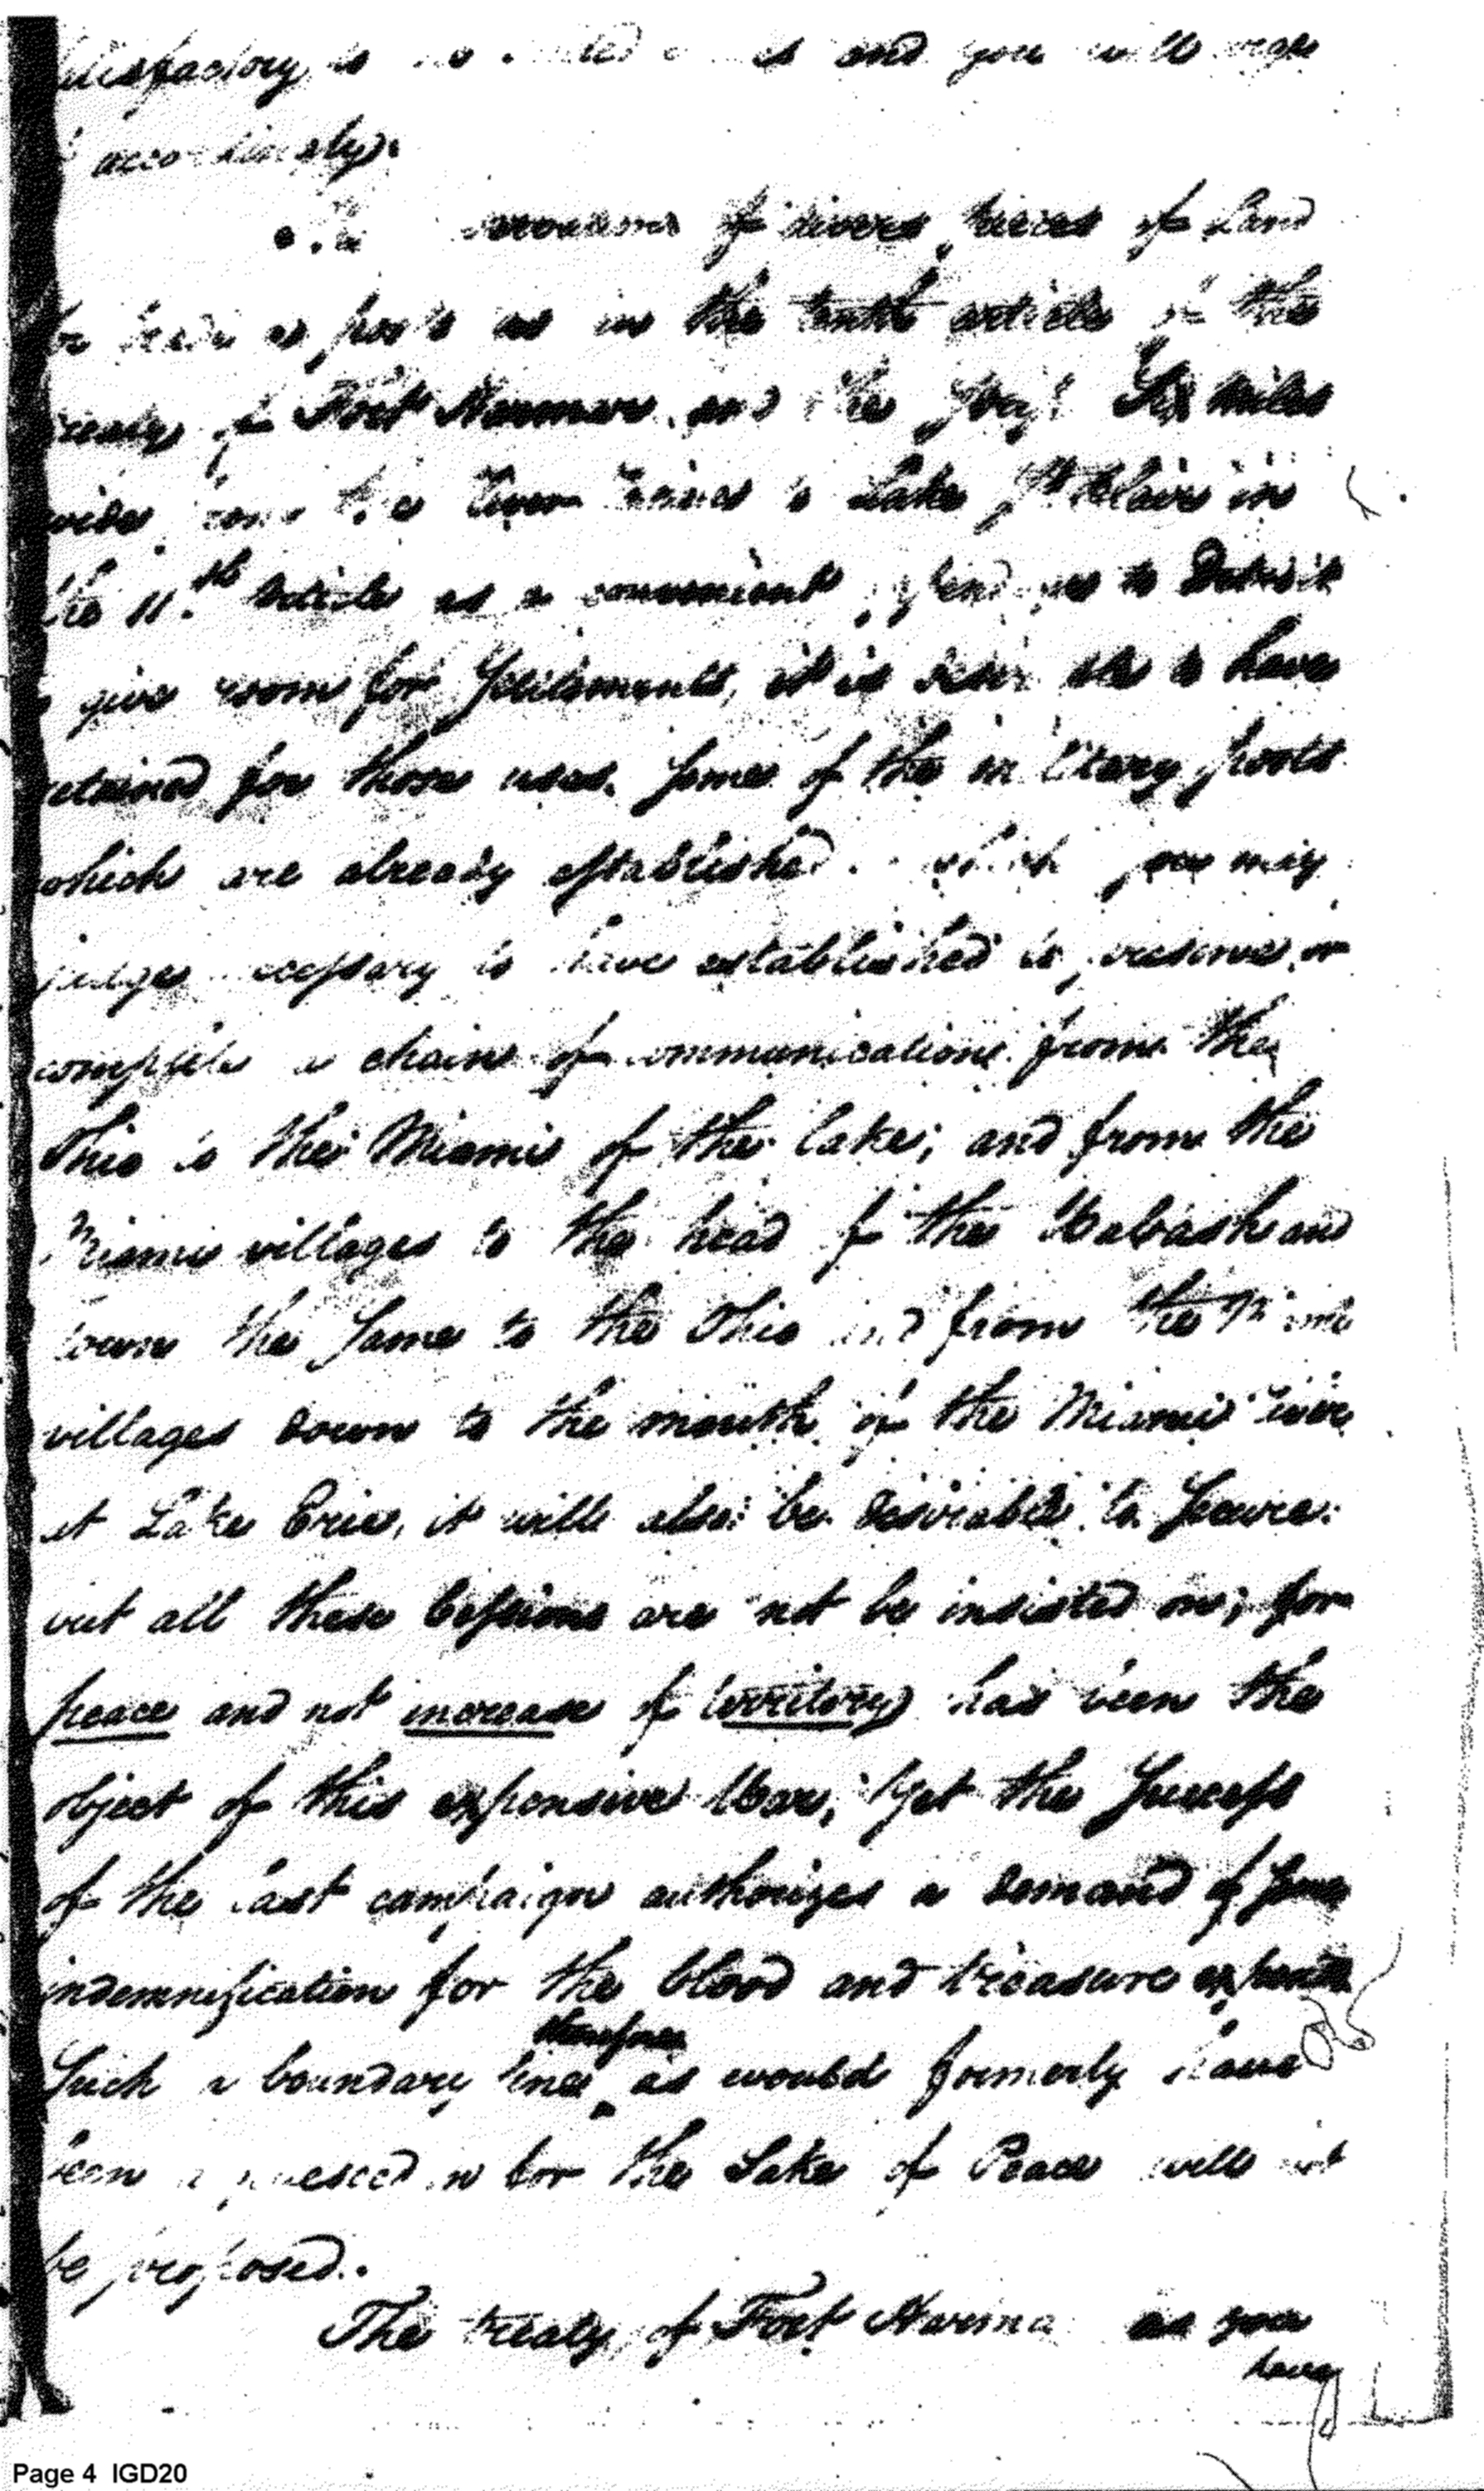 satisfactory to and you will
accordingly.
of divers pieces of Land
for as posts as in the tenth article of the
treaty of Fort Harmar and the Six miles
wide from the River to Lake St. Clair in
the 11.th article as a convenient to Detroit
give room for Settlements, it is to have
retained for those uses. Some of the military posts
which are already established. which you may
judge necessary to have established to preserve or
complete a chain of communication from the
Ohio to the Miami of the lake; and from the
Miami villages to the head of the Wabash and
down the Same to the Ohio and from the Miami
villages down to the mouth of the Miami river
at Lake Erie, it will also be desirable to Secure:
but all these Cessions are not be insisted on; for
peace and not increase of territory has been the
object of this expensive War, Yet the Success
of the last campaign authorizes a demand of Some
indemnification for the blood and treasure expended
therefore
Such a boundary line as would formerly have
been acquiesced in for the Sake of Peace will not
be proposed.
The treaty of Fort Harmar as you
have
Page 4 IGD20